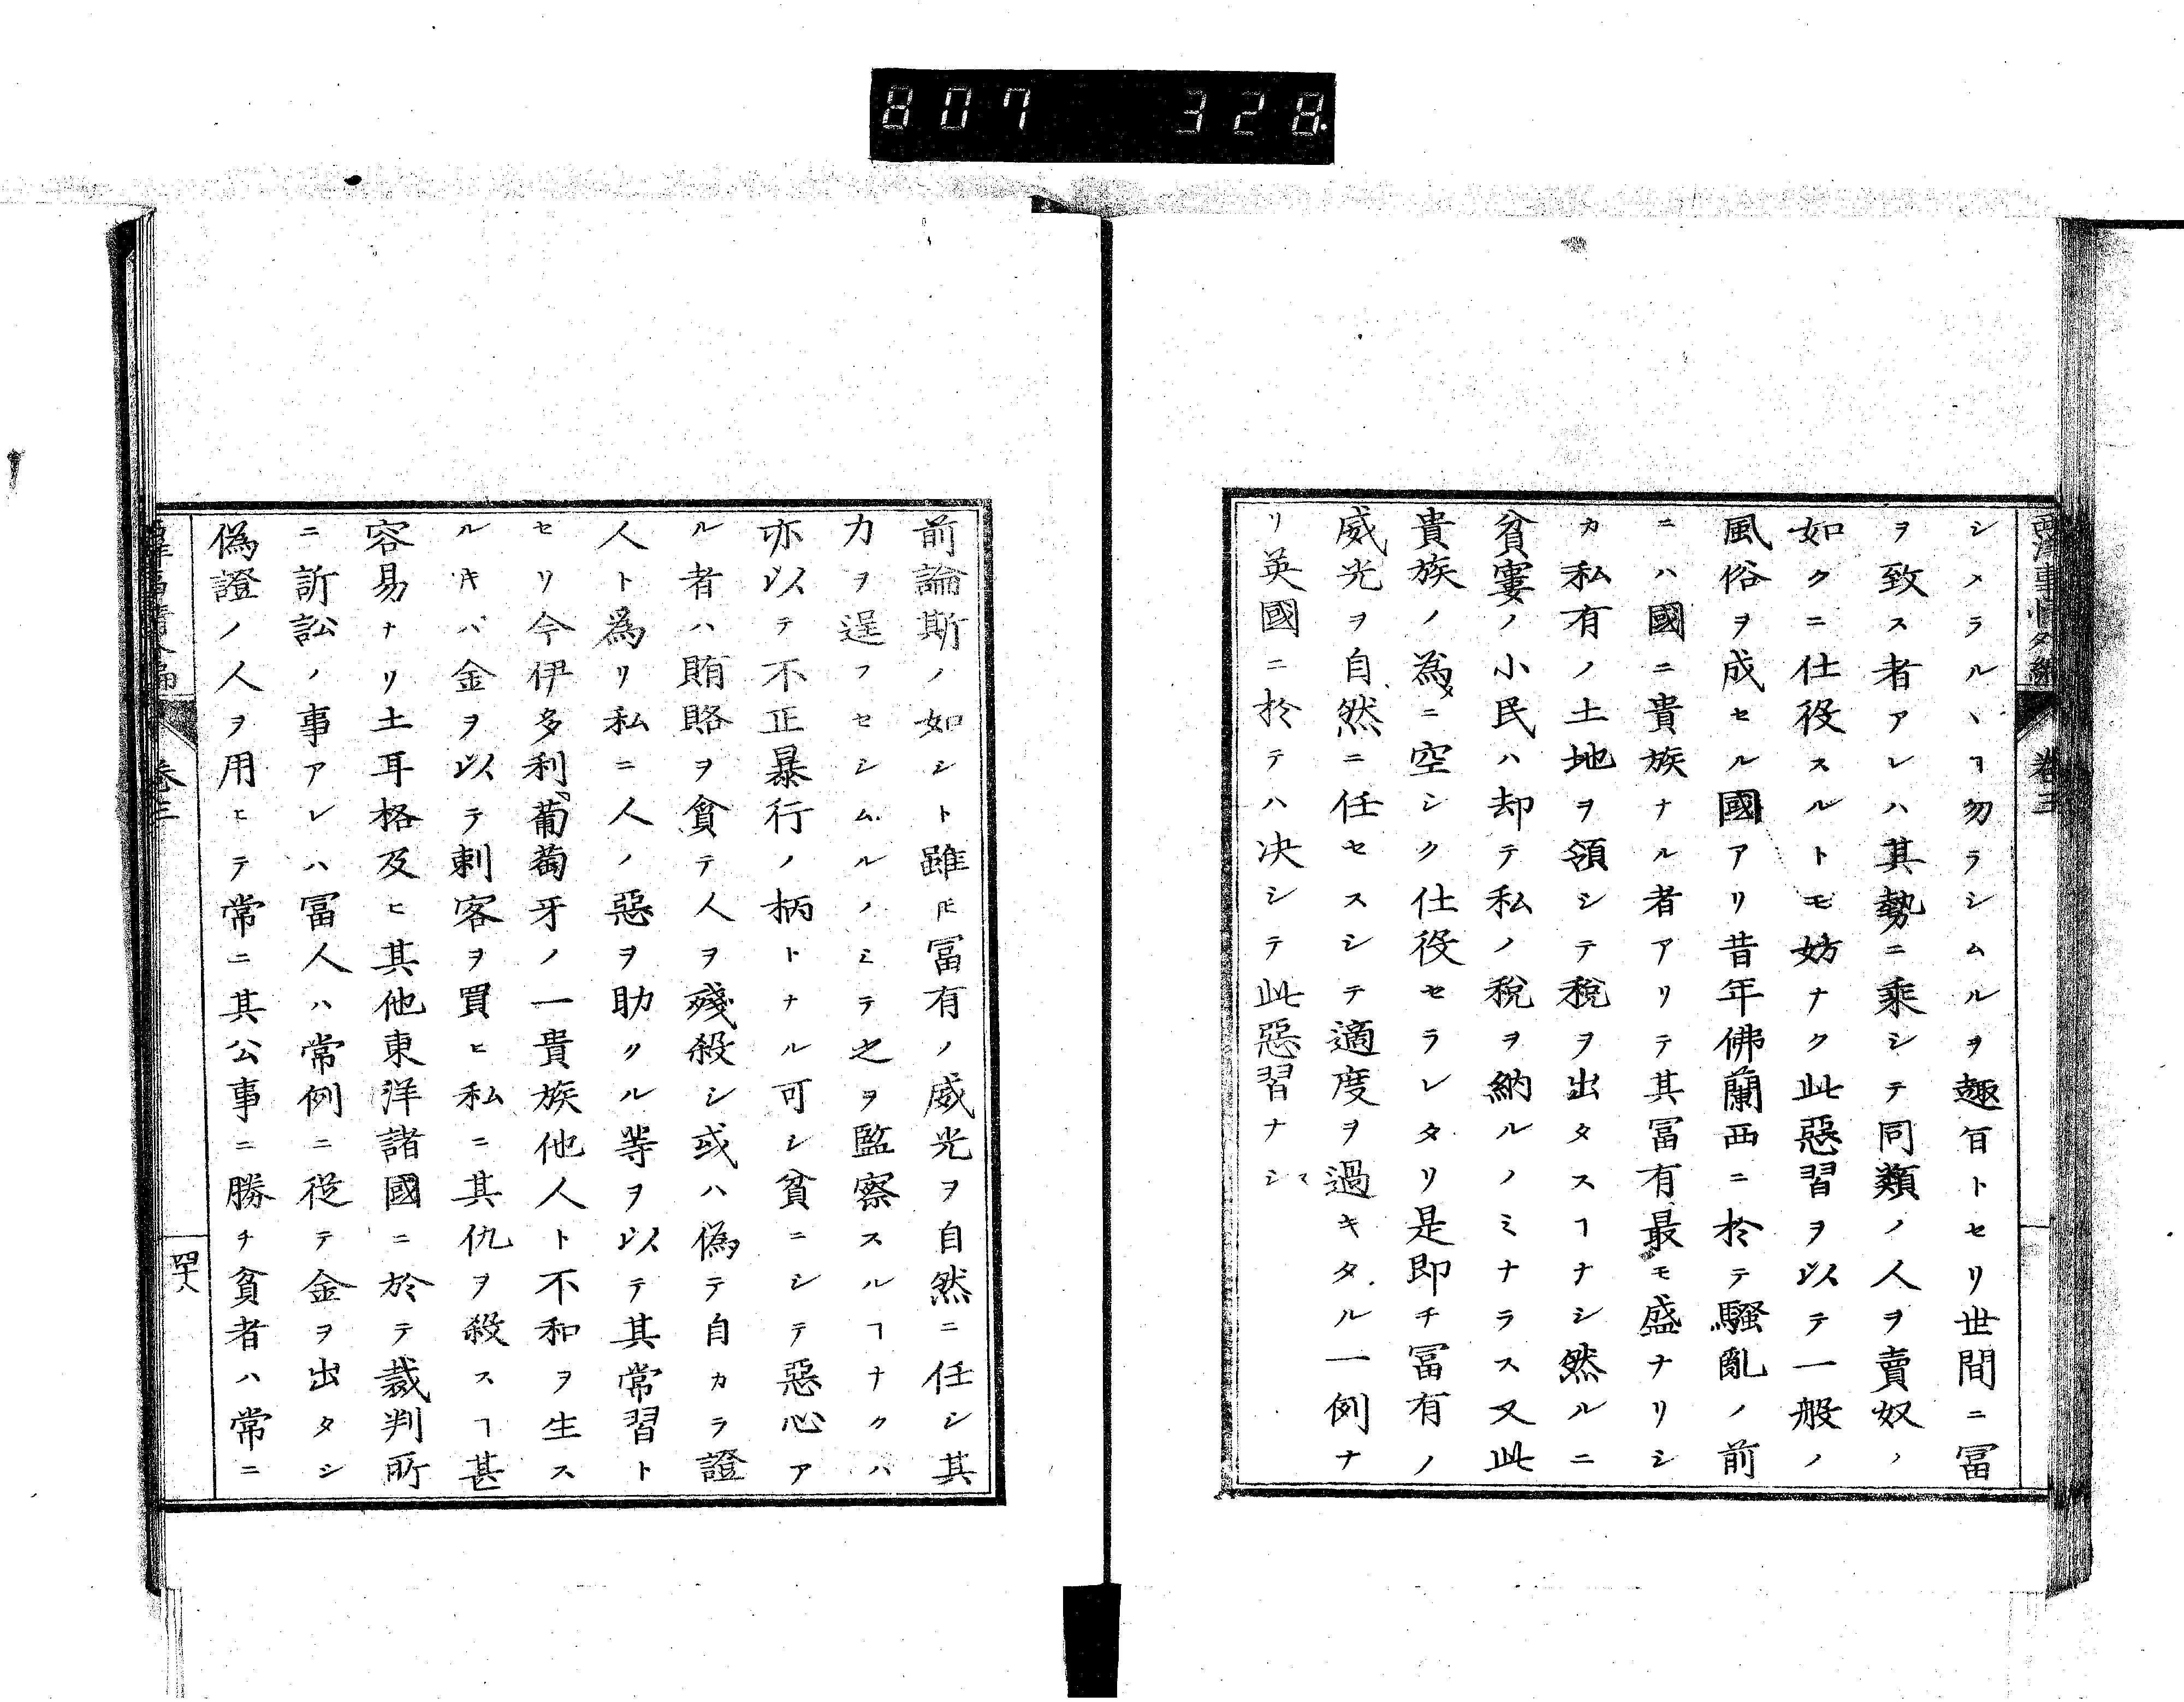 807 328
西洋事情外編 卷三
シメラルヽヿ勿ラシムルヲ趣旨トセリ世間ニ冨
ヲ致ス者アレハ其勢ニ乘シテ同類ノ人ヲ賣奴ノ
如クニ仕役スルトモ妨ナク此惡習ヲ以テ一般ノ
風俗ヲ成セル國アリ昔年佛蘭西ニ於テ騷亂ノ前
ニハ國ニ貴族ナル者アリテ其冨有最モ盛ナリシ
カ私有ノ土地ヲ領シテ稅ヲ出タスヿナシ然ルニ
貧寠ノ小民ハ却テ私ノ稅ヲ納ルノミナラス又此
貴族ノ為メニ空シク仕役セラレタリ是即チ冨有ノ
威光ヲ自然ニ任セスシテ適度ヲ過キタル一例ナ
リ英國ニ於テハ决シテ此惡習ナシ
前論斯ノ如シト雖𪜈冨有ノ威光ヲ自然ニ任シ其
力ヲ逞フセシムルノミテ之ヲ監察スルヿナクハ
亦以テ不正暴行ノ柄トナル可シ貧ニシテ惡心ア
ル者ハ賄賂ヲ貪テ人ヲ殘殺シ或ハ偽テ自カラ證
人ト為リ私ニ人ノ惡ヲ助クル等ヲ以テ其常習ト
セリ今伊多利葡萄牙ノ一貴族他人ト不和ヲ生ス
ルキバ金ヲ以テ刺客ヲ買ヒ私ニ其仇ヲ殺スヿ甚
容易ナリ土耳格及ヒ其他東洋諸國ニ於テ裁判所
ニ訢訟ノ事アレハ冨人ハ常例ニ從テ金ヲ出タシ
偽證ノ人ヲ用ヒテ常ニ其公事ニ勝チ貧者ハ常ニ
西洋事情外編 卷三 四十八